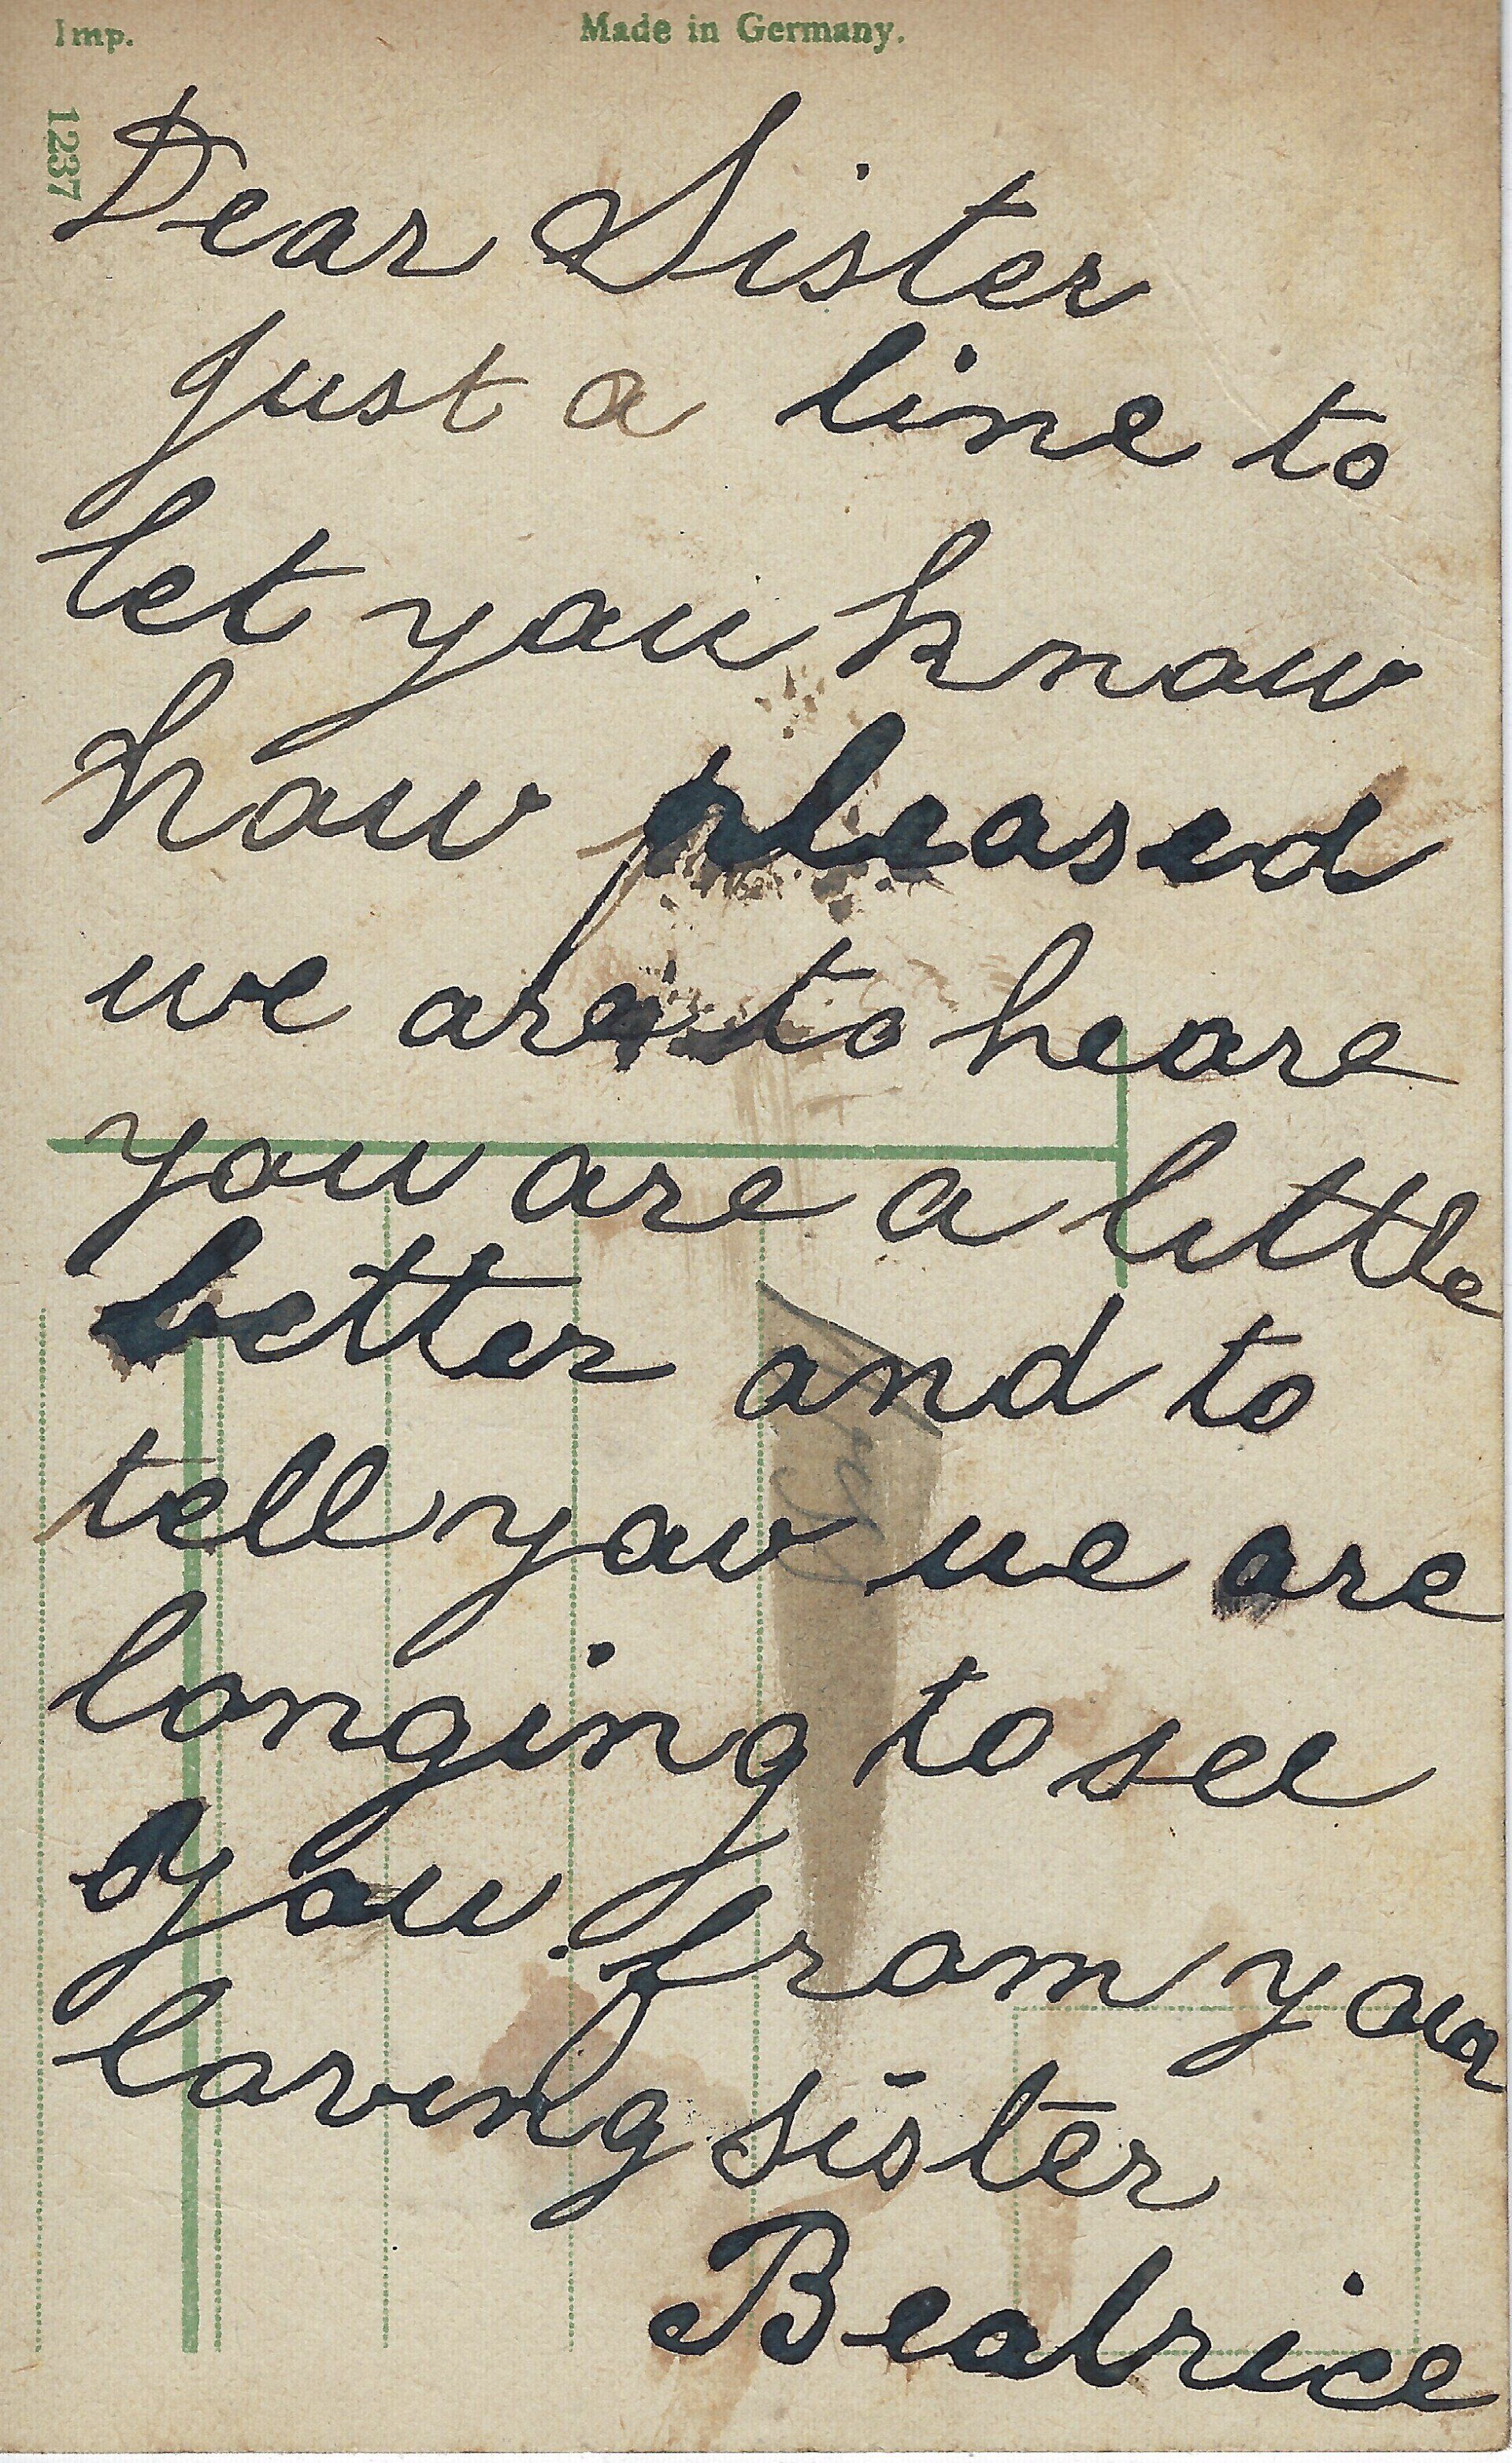 Imp.
Made in Germany.
1237
Dear Sister
just a line to
let you know
how pleased
we are to heare
you are a little
better and to
tell you we are
longing to see
you. from your
loving sister
Beatrice